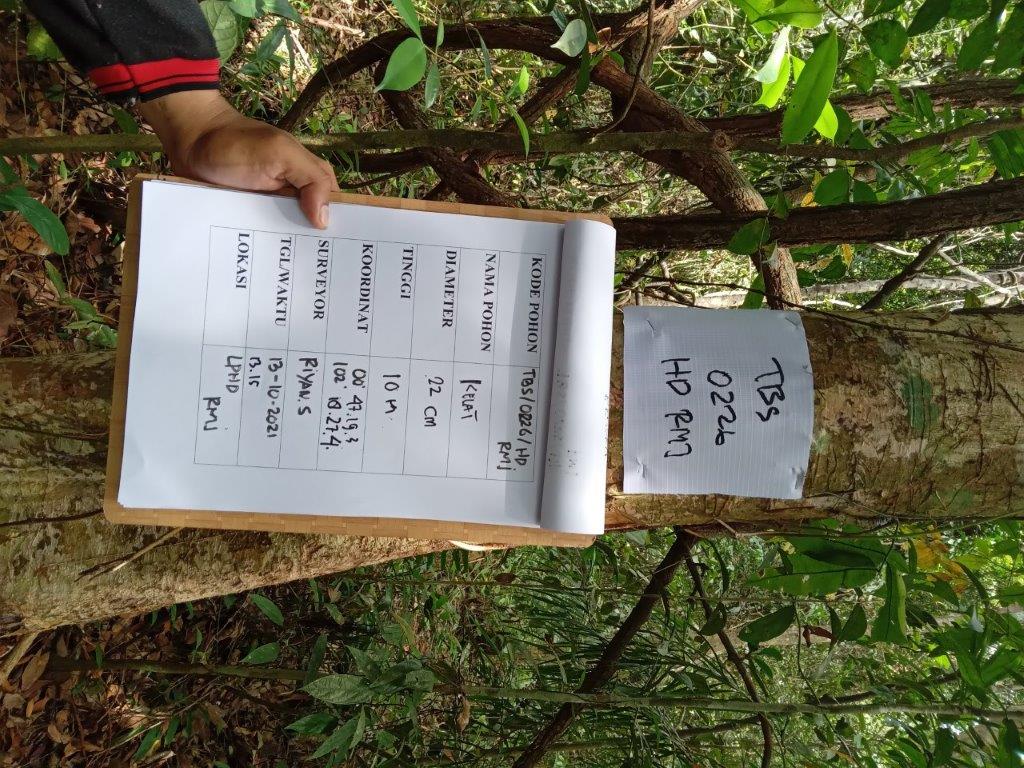 TBS
0226
HD RMJ
KODE POHON TBS/0226/HD
RMJ
NAMA POHON KELAT
DIAMETER 22 CM
TINGGI 10 M.
KOORDINAT 00° 47.19.3
102° 18.27.4.
SURVEYOR RIYAN.S
TGL/WAKTU 13-10-2021
13.15
LOKASI LPHD
RMJ